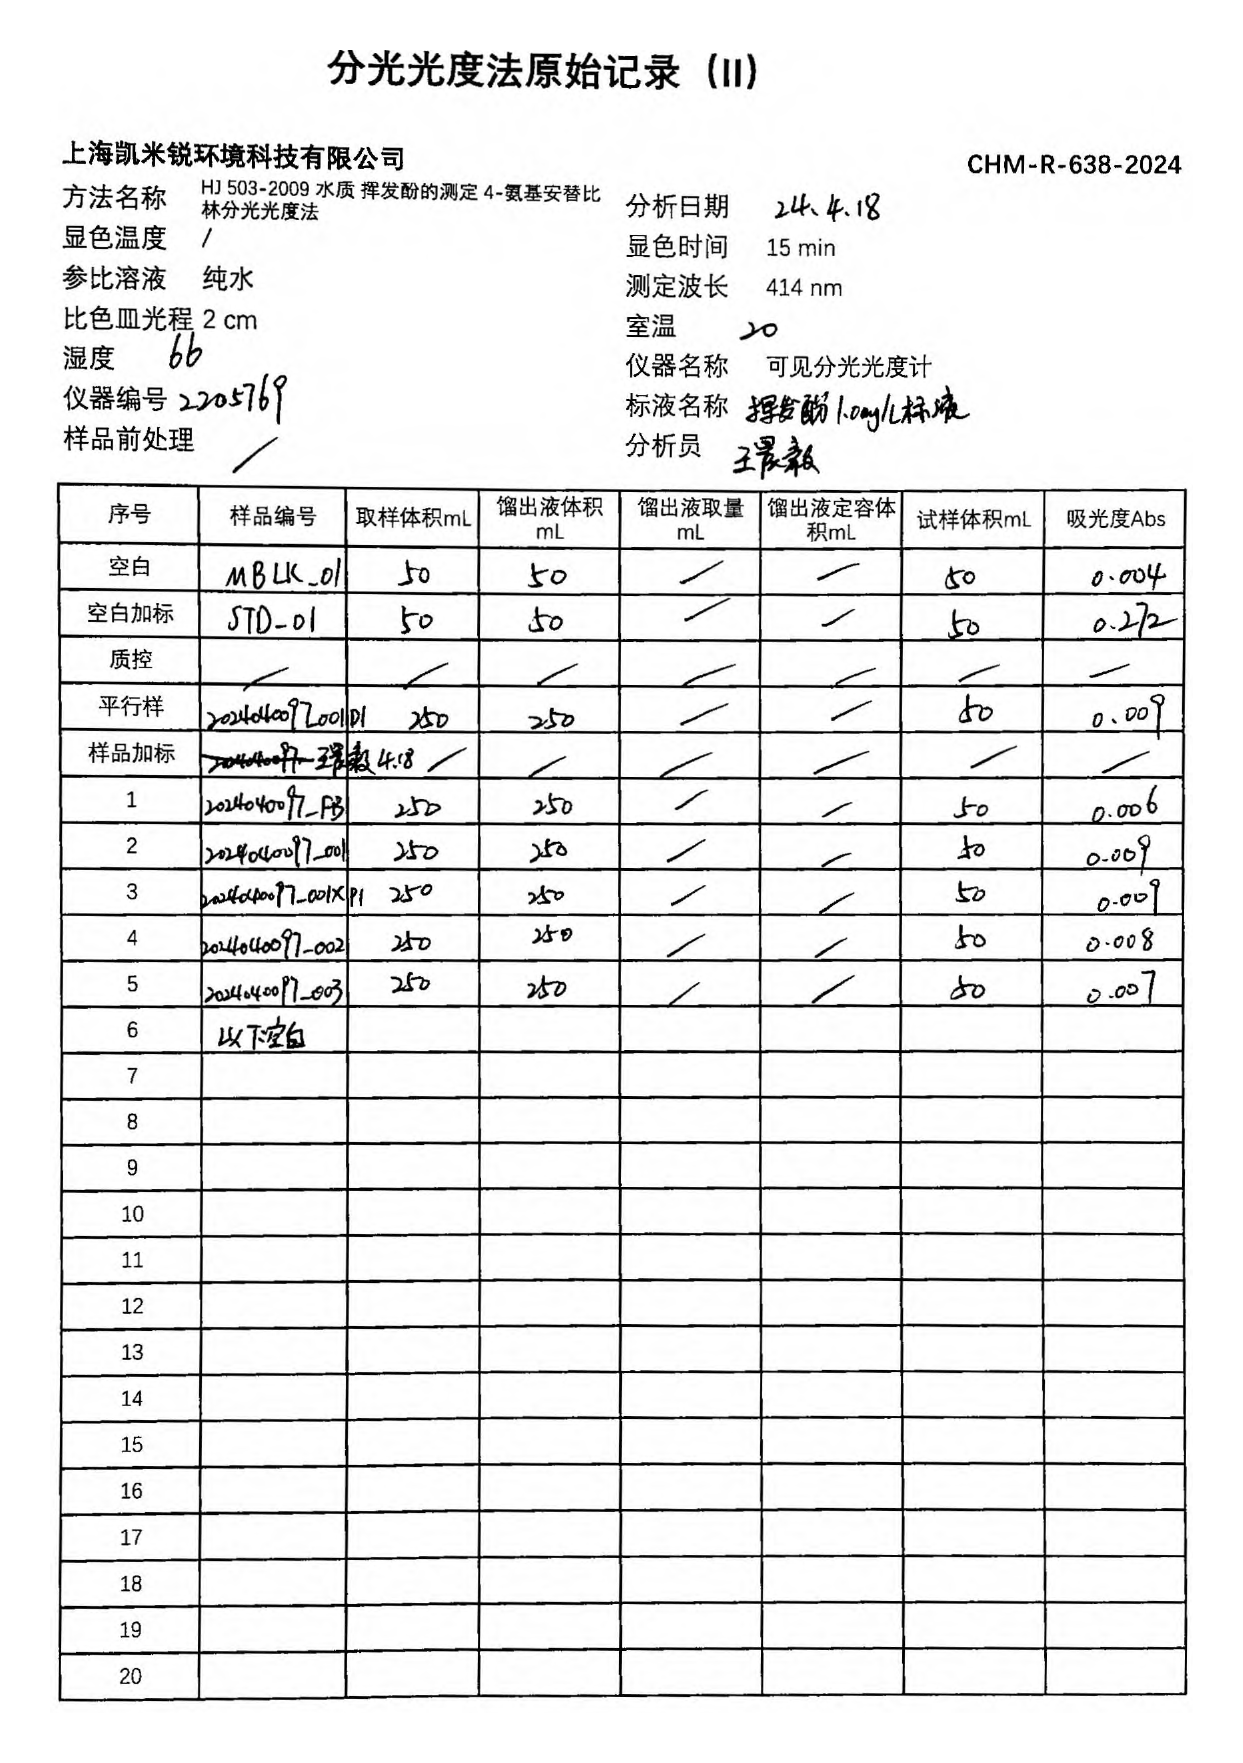 分光光度法原始记录（II）
上海凯米锐环境科技有限公司
CHM-R-638-2024
方法名称 HJ 503-2009 水质 挥发酚的测定 4-氨基安替比
林分光光度法
分析日期 24.4.18
显色温度 /
显色时间 15 min
参比溶液 纯水
测定波长 414 nm
比色皿光程 2 cm
室温 20
湿度 66
仪器名称 可见分光光度计
仪器编号 2205769
标液名称 挥发酚1.0mg/L标液
样品前处理 /
分析员 王晨毅
序号 样品编号 取样体积mL 馏出液体积mL 馏出液取量mL 馏出液定容体积mL 试样体积mL 吸光度Abs
空白 MBLK_01 50 50 / / 50 0.004
空白加标 STD-01 50 50 / / 50 0.272
质控 / / / / / / /
平行样 250 250 / / 50 0.009
样品加标 王晨毅 4.18 / / / / / /
1 2024040097_FB 250 250 / / 50 0.006
2 2024040097_001 250 250 / / 50 0.009
3 2024040097_001XP1 250 250 / / 50 0.009
4 2024040097_002 250 250 / / 50 0.008
5 2024040097_003 250 250 / / 50 0.007
6 以下空白
7
8
9
10
11
12
13
14
15
16
17
18
19
20